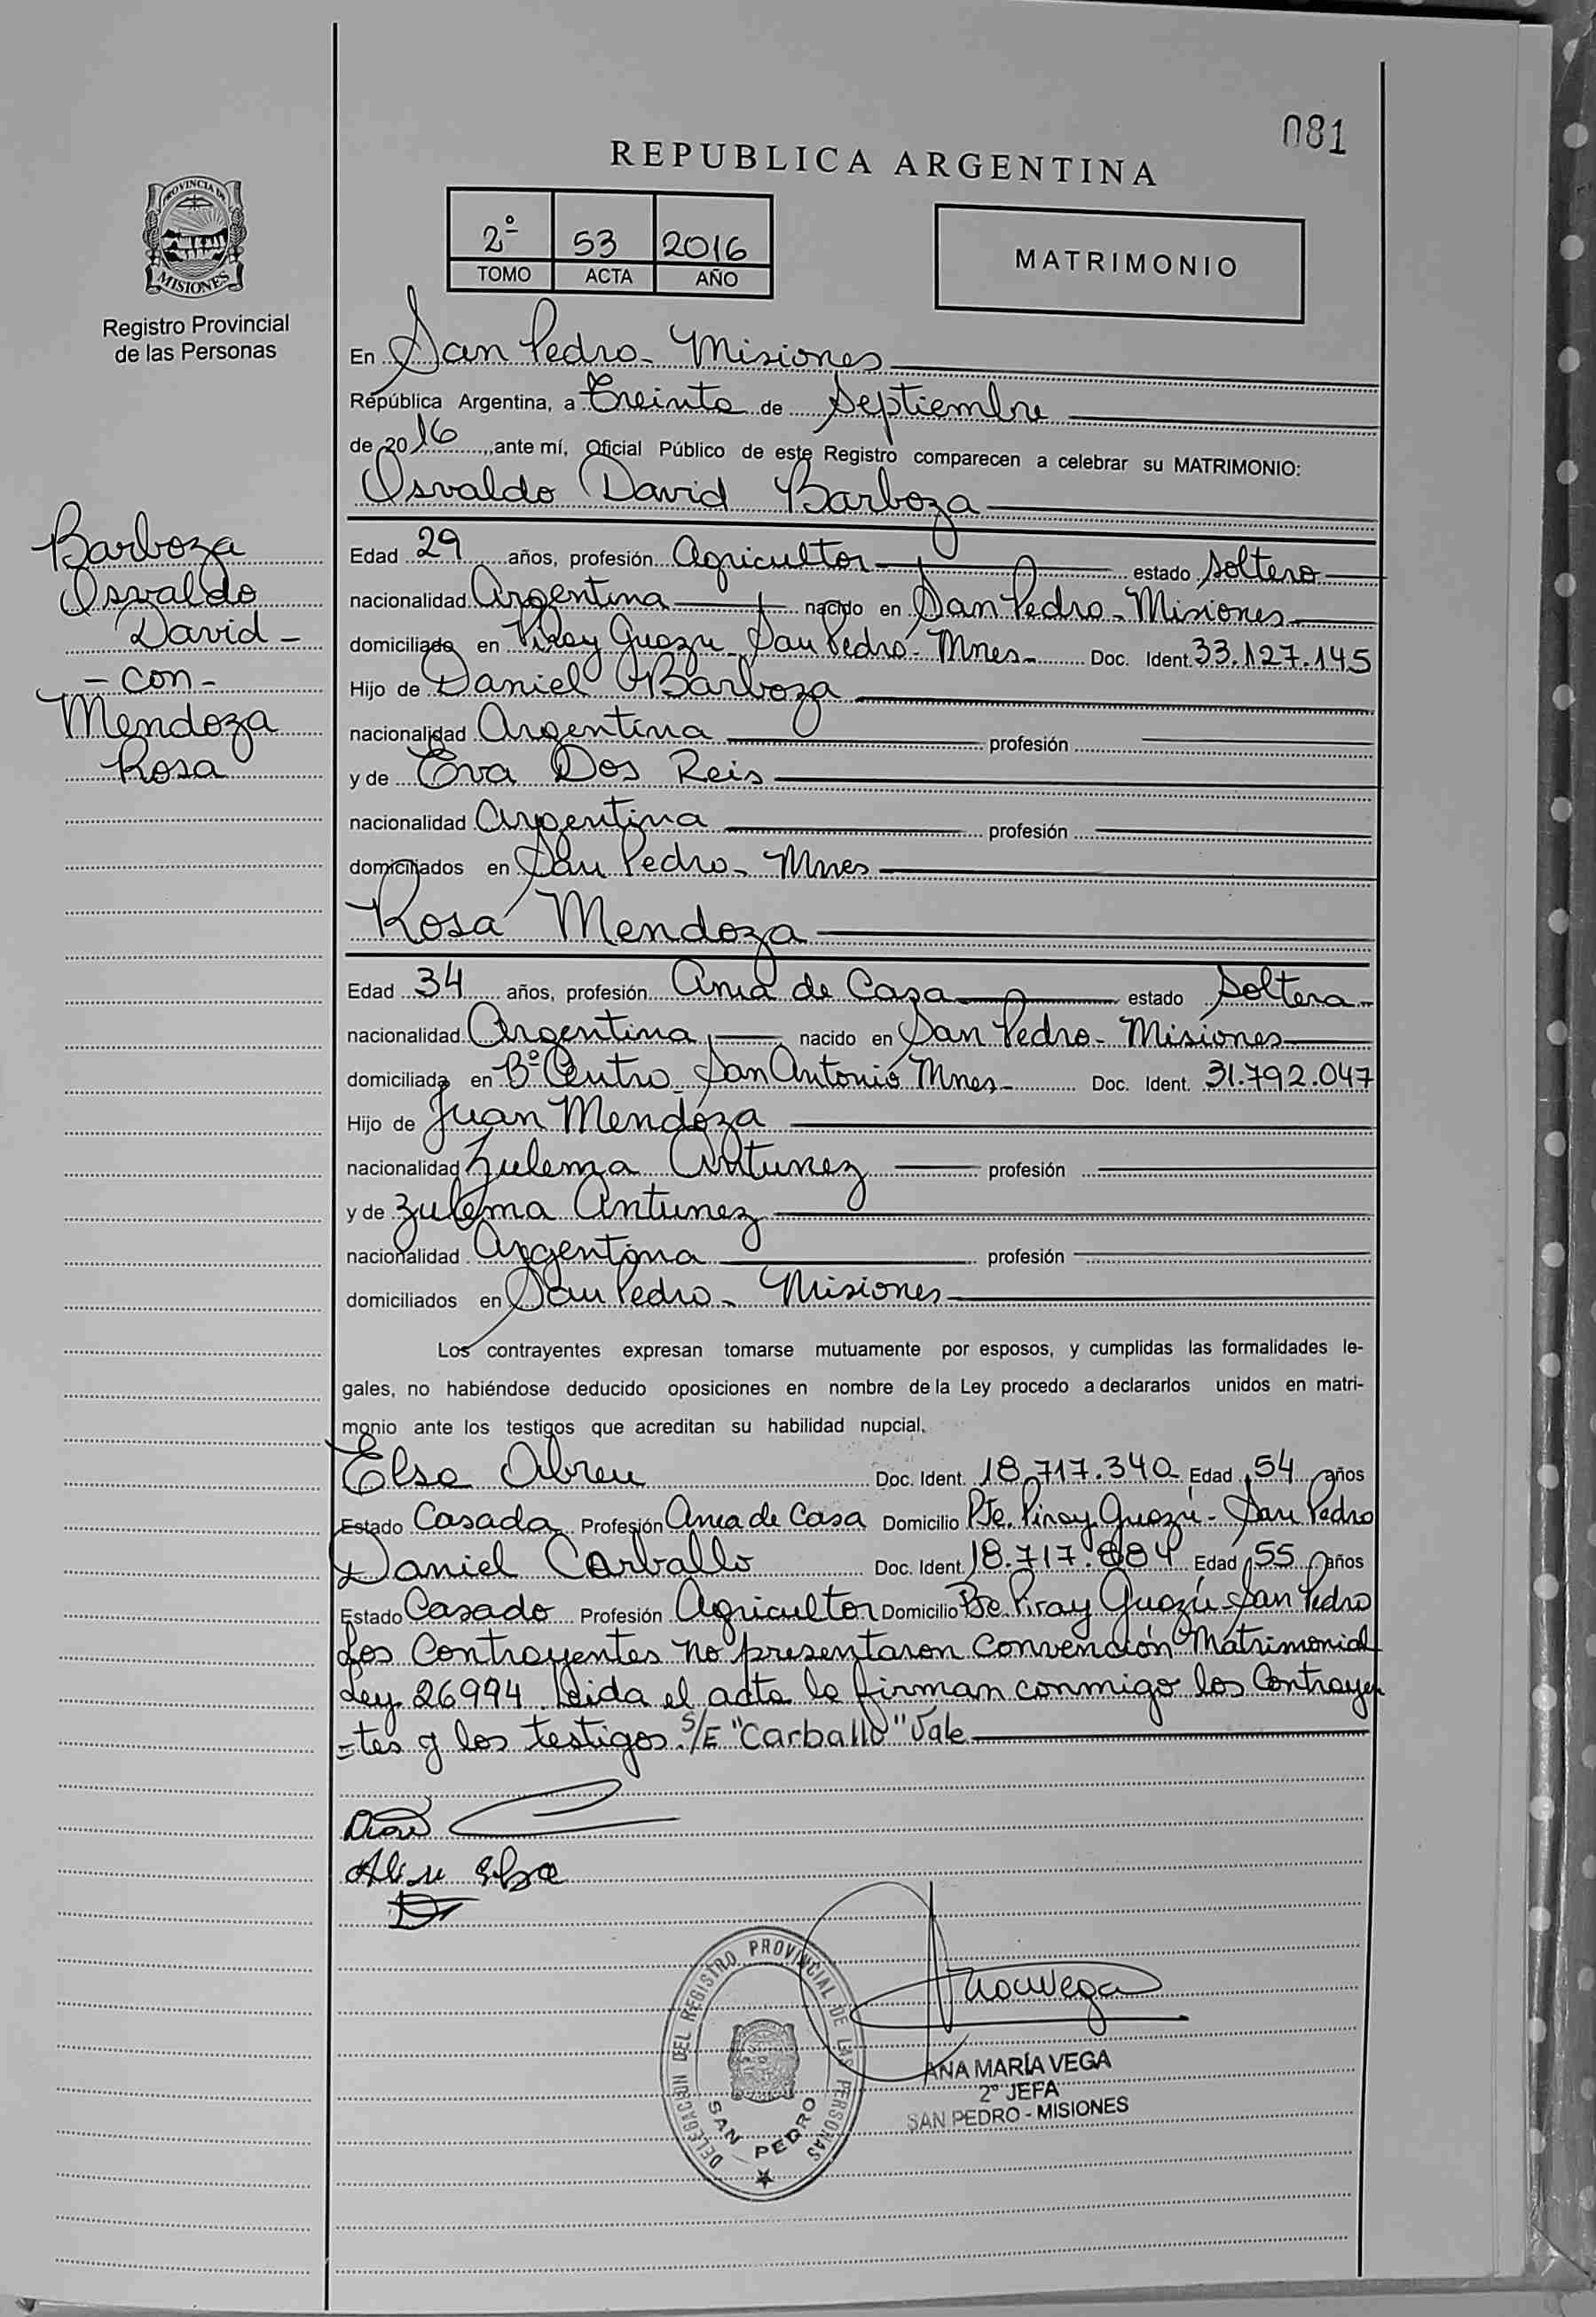 081
REPUBLICA ARGENTINA
2º 53 2016
TOMO ACTA AÑO
MATRIMONIO
PROVINCIA DE
MISIONES
Registro Provincial
de las Personas
Barboza
Osvaldo
David -
- con -
Mendoza
Rosa
En San Pedro - Misiones
República Argentina, a Treinta de Septiembre
de 2016, ante mí, Oficial Público de este Registro comparecen a celebrar su MATRIMONIO:
Osvaldo David Barboza
Edad 29 años, profesión Agricultor estado Soltero
nacionalidad Argentina nacido en San Pedro - Misiones
domiciliado en Piray Guazu San Pedro - Mnes - Doc. Ident. 33.127.145
Hijo de Daniel Barboza
nacionalidad Argentina profesión
y de Eva Dos Reis
nacionalidad Argentina profesión
domiciliados en San Pedro - Mnes
Rosa Mendoza
Edad 34 años, profesión Ama de Casa estado Soltera
nacionalidad Argentina nacido en San Pedro - Misiones
domiciliada en Bº Centro San Antonio Mnes - Doc. Ident. 31.792.047
Hijo de Juan Mendoza
nacionalidad Zulema Antunez profesión
y de Zulema Antunez
nacionalidad Argentina profesión
domiciliados en San Pedro - Misiones
Los contrayentes expresan tomarse mutuamente por esposos, y cumplidas las formalidades le-
gales, no habiéndose deducido oposiciones en nombre de la Ley procedo a declararlos unidos en matri-
monio ante los testigos que acreditan su habilidad nupcial.
Elsa Abreu Doc. Ident. 18.717.340 Edad 54 años
Estado Casada Profesión Ama de Casa Domicilio Pje. Piray Guazú - San Pedro
Daniel Carballo Doc. Ident. 18.717.884 Edad 55 años
Estado Casado Profesión Agricultor Domicilio Pje. Piray Guazú - San Pedro
Los Contrayentes no presentaron Convención Matrimonial
Ley 26994 Leida el acta la firman conmigo los Contrayen
-tes y los testigos. S/E "Carballo" Vale
Abreu Elsa
DELEGACION DEL REGISTRO PROVINCIAL DE LAS PERSONAS
SAN PEDRO
ANA MARÍA VEGA
2º JEFA
SAN PEDRO - MISIONES